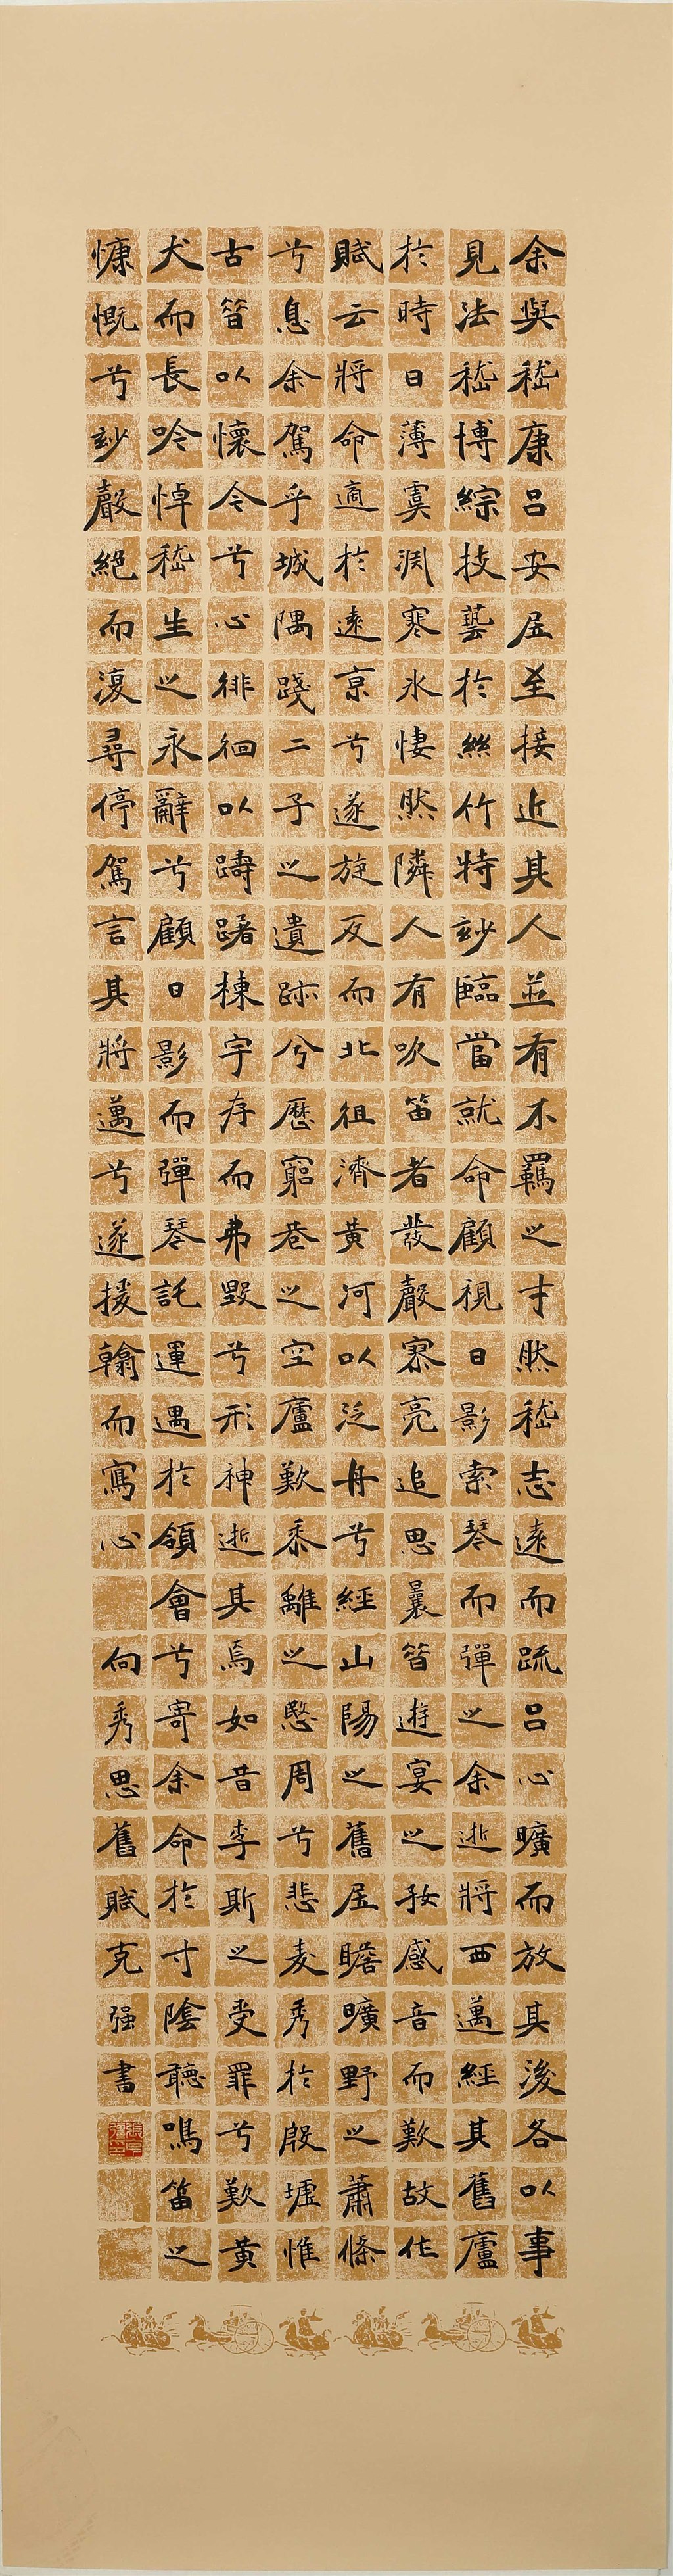 余與嵇康呂安居至接近其人並有不羈之才然嵇志遠而疏呂心曠而放其後各以事
見法嵇博綜技藝於絲竹特妙臨當就命顧視日影索琴而彈之余逝將西邁經其舊廬
於時日薄虞淵寒冰悽然隣人有吹笛者發聲寥亮追思曩昔遊宴之好感音而歎故作
賦云將命適於遠京兮遂旋反而北徂濟黃河以泛舟兮經山陽之舊居瞻曠野之蕭條
兮息余駕乎城隅踐二子之遺跡兮歷窮巷之空廬歎黍離之愍周兮悲麥秀於殷墟惟
古昔以懷今兮心徘徊以躊躇棟宇存而弗毀兮形神逝其焉如昔李斯之受罪兮歎黃
犬而長吟悼嵇生之永辭兮顧日影而彈琴託運遇於領會兮寄余命於寸陰聽鳴笛之
慷慨兮妙聲絕而復尋停駕言其將邁兮遂援翰而寫心 向秀思舊賦克强書